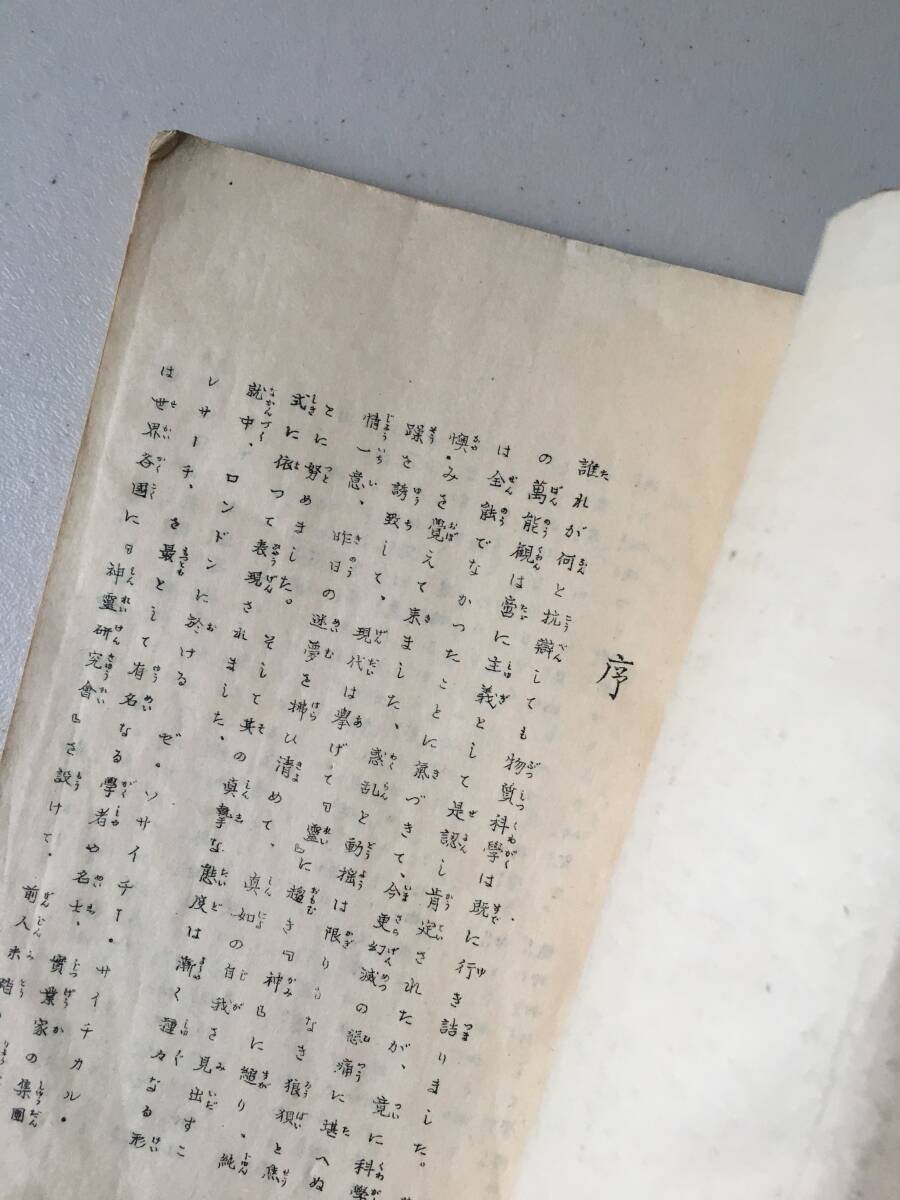 序
誰れが何と抗辯しても物質科學は既に行き詰りました。
の萬能觀は啻に主義として是認し肯定されたが、竟に科學
は全能でなかつたことに氣づきて、今更幻滅の悲痛に堪へぬ
懊みを覺えて来ました、惑乱と動揺は限りなき狼狽と焦
躁を誘致して、現代は擧げて『靈』に趨き『神』に縋り、純
情一意、昨日の迷夢を拂ひ清めて、真如の自我を見出すこ
とに努めました。そして其の真摯な態度は漸く種々なる形
式に依つて表現されました、
就中、ロンドンに於ける ゼ・ソサイチー・サイチカル・
レサーチ、を最として有名なる學者や名士、實業家の集團
は世界各國に『神靈研究會』を設けて、前人未踏